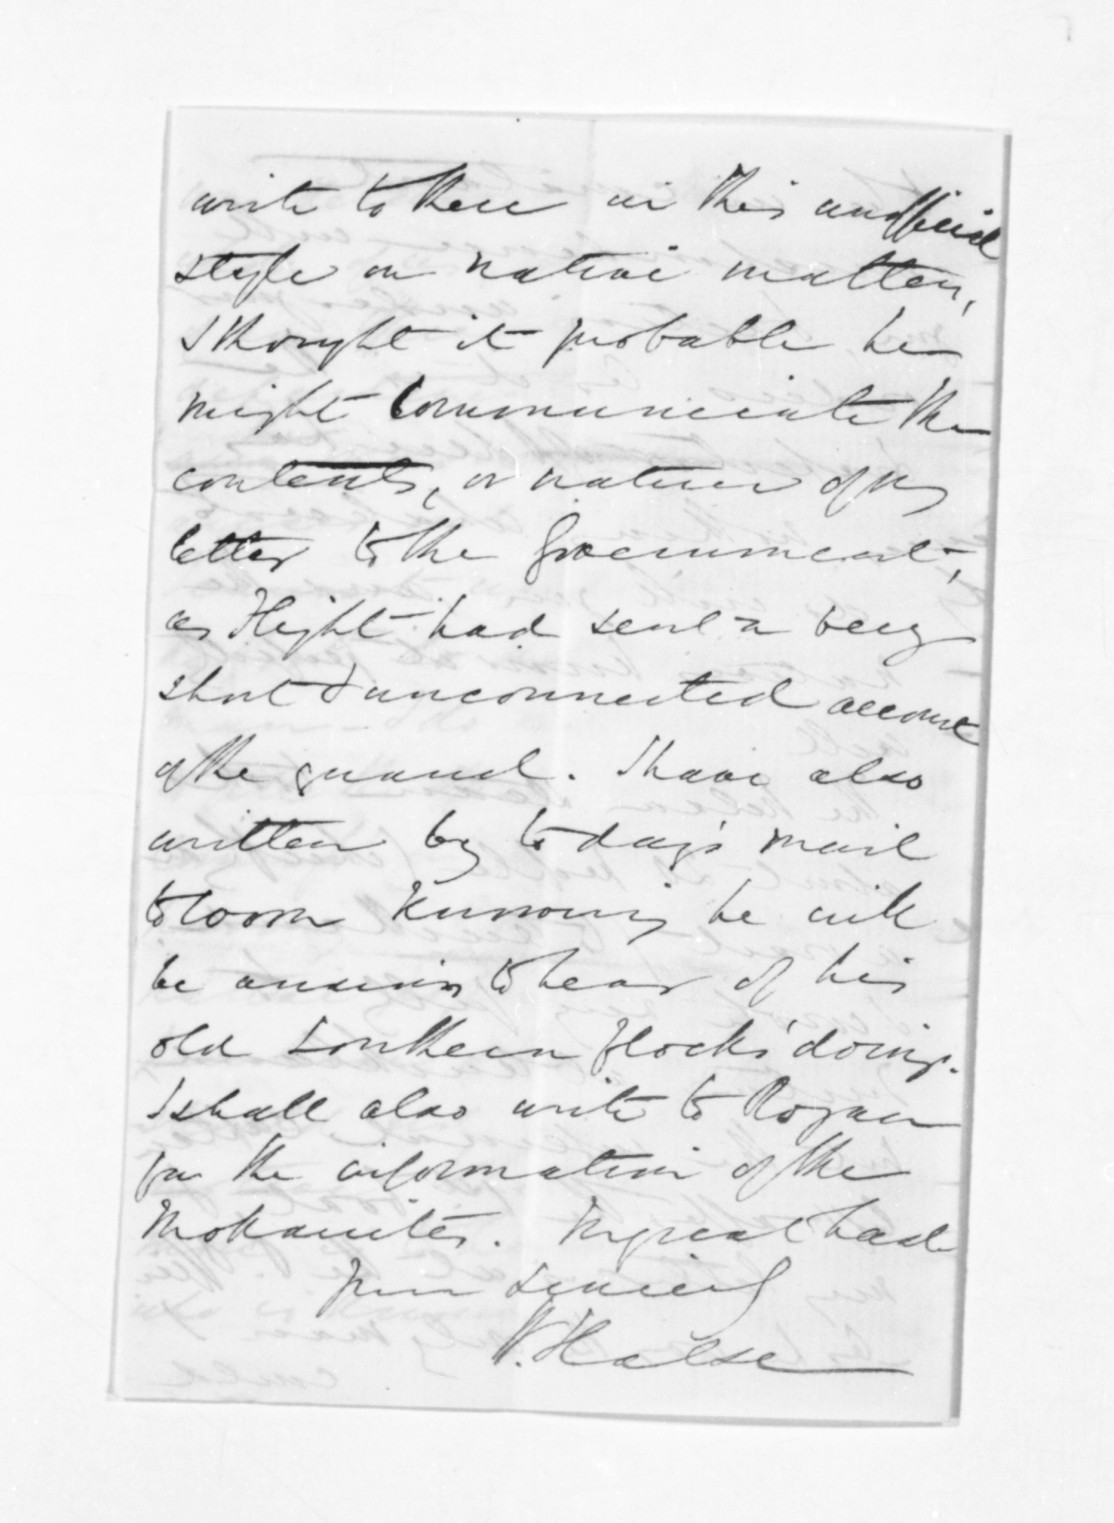 write to thee in this unofficial
style on native matters,
I thought it probable he
might communicate the
contents, or nature of my
letter to the Government,
as Flight had sent a very
short & unconnected account
of the quarrel. I have also
written by to day's mail
to knowing he will
be anxious to hear of his
old Southern flocks' doings.
I shall also write to Rogan
for the information of the
Mokauites. In great haste
Yours sincerely
W. Halse